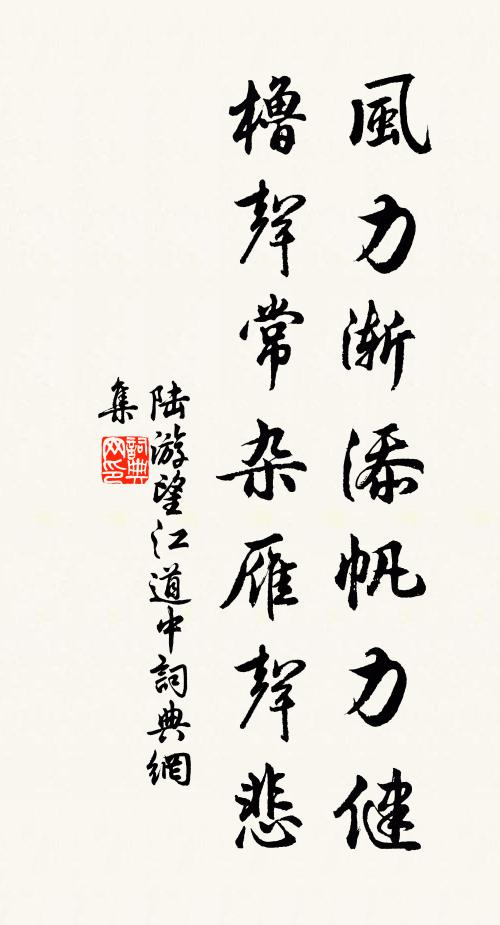 風力渐添帆力健
櫓聲常杂雁聲悲
陆游望江道中詞典網
集
詞典
网印